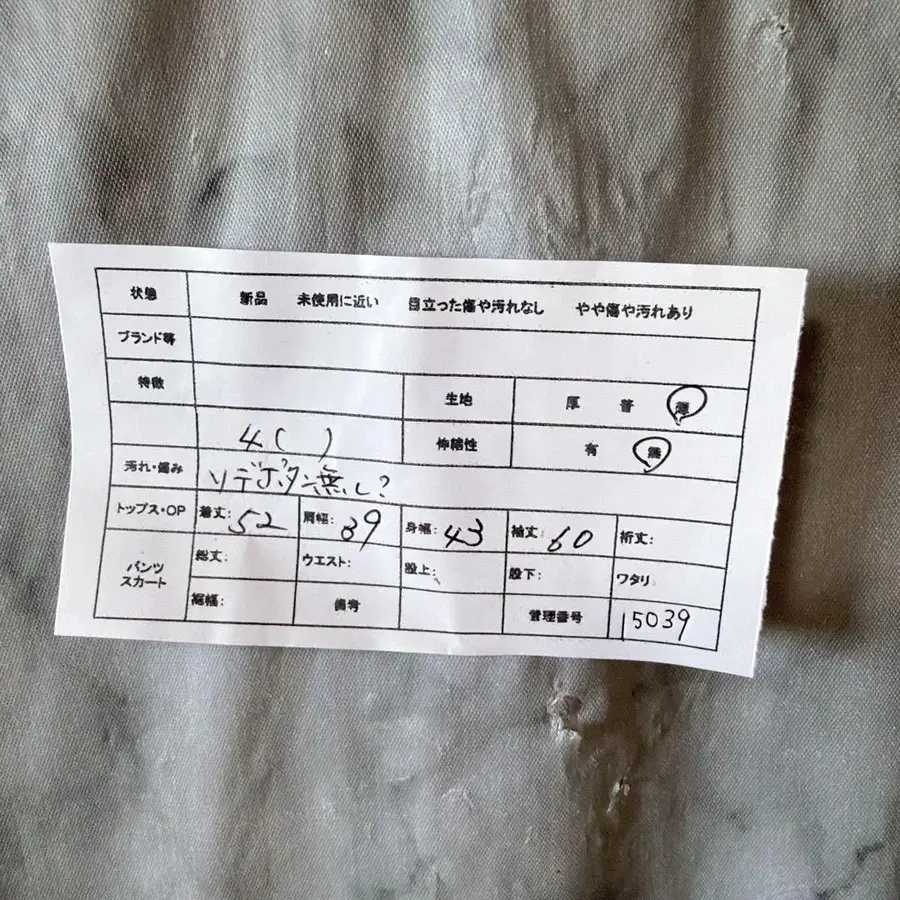 状態 新品 未使用に近い 目立った傷や汚れなし やや傷や汚れあり
ブランド等
特徴 生地 厚 普 薄
4( ) 伸縮性 有 無
汚れ・傷み ソデボタン無し?
トップス・OP 着丈: 52 肩幅: 39 身幅: 43 袖丈: 60 裄丈:
パンツ スカート 総丈: ウエスト: 股上: 股下: ワタリ
裾幅: 備考 管理番号 15039